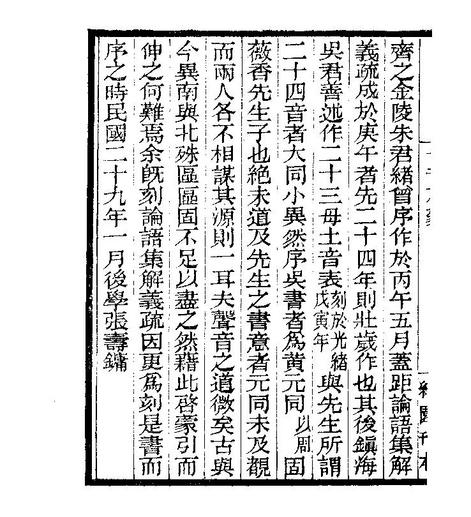 齊之金陵朱君緒曾序作於丙午五月蓋距論語集解
義疏成於庚午者先二十四年則壯歲作也其後鎮海
吳君善述作二十三母土音表刻於光緒戊寅年與先生所謂
二十四音者大同小異然序吳書者爲黃元同以周固
薇香先生子也絶未道及先生之書意者元同未及觀
而兩人各不相謀其源則一耳夫聲音之道微矣古與
今異南與北殊區區固不足以盡之然藉此啓蒙引而
伸之何難焉余既刻論語集解義疏因更爲刻是書而
序之時民國二十九年一月後學張壽鏞